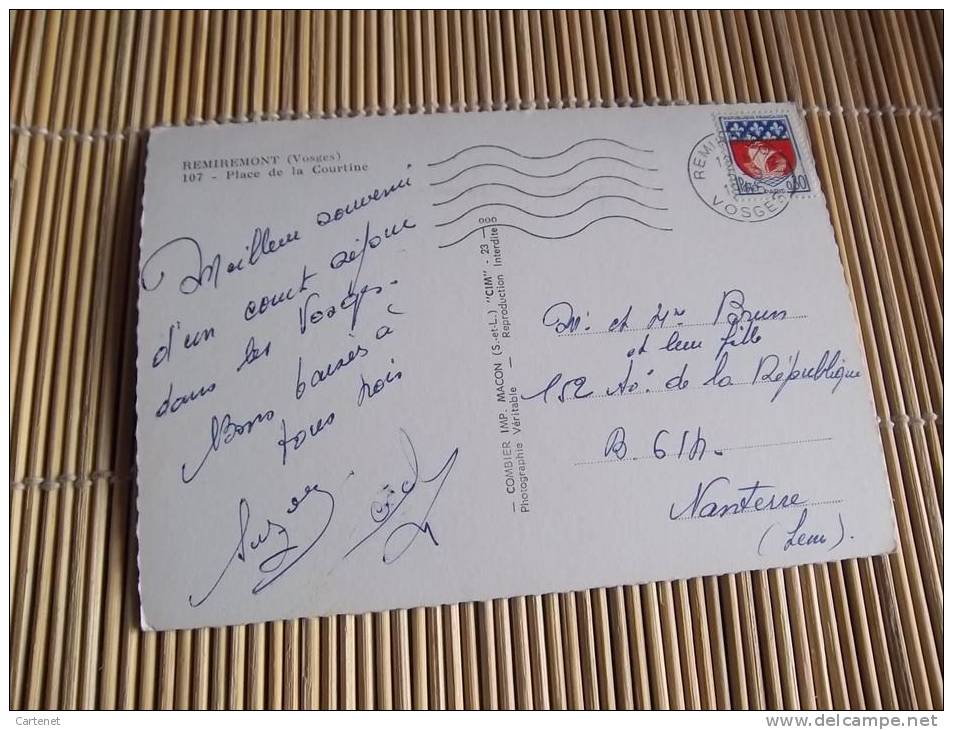 REMIREMONT (Vosges)
107 - Place de la Courtine
Meilleur souvenir
d'un court séjour
dans les Vosges.
Bons baisers à
tous trois
— COMBIER IMP. MACON (S.-et-L.) "CIM" - 23 —
Photographie Véritable — Reproduction Interdite
REPUBLIQUE FRANÇAISE
PARIS
0,30
VOSGES
M. et Mme Brun
et leur fille
152 Av: de la République
Nanterre
Cartenet
www.delcampe.net